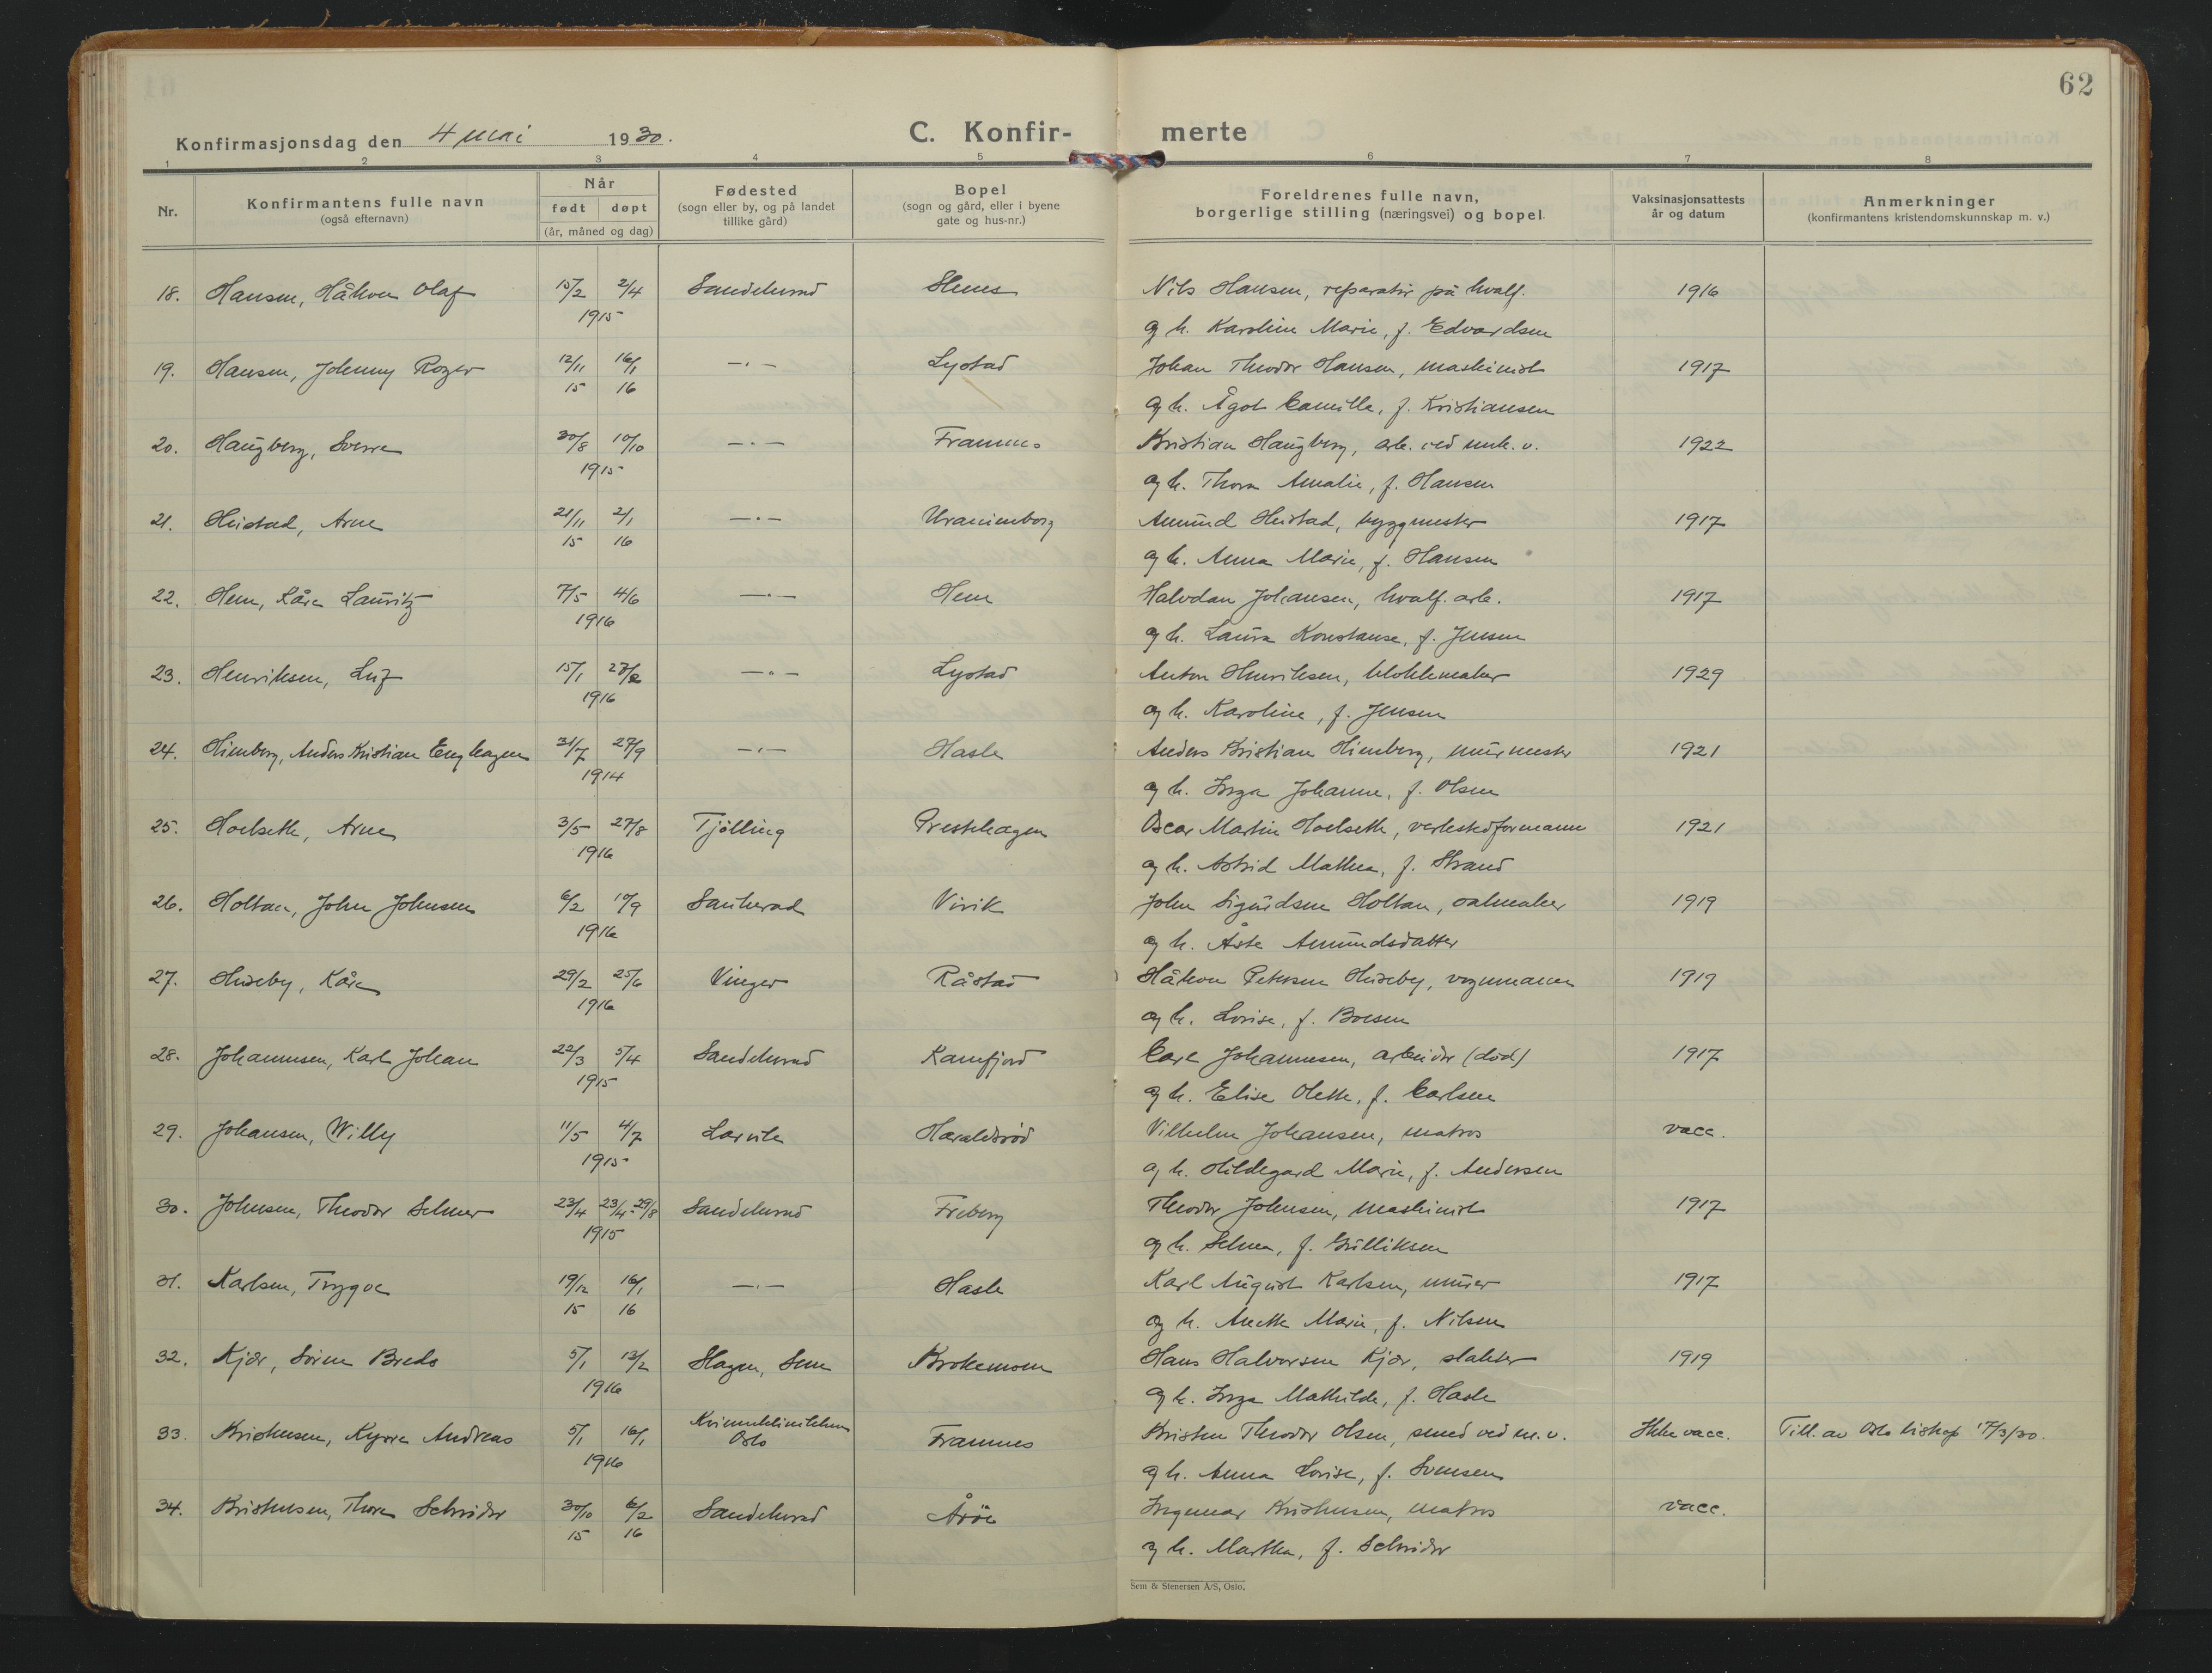 62
Konfirmasjonsdag den 4 mai 1930.
C. Konfir- merte
1 2 3 4 5 6 7 8
Nr.
Konfirmantens fulle navn
(også efternavn)
Når
født døpt
(år, måned og dag)
Fødested
(sogn eller by, og på landet
tillike gård)
Bopel
(sogn og gård, eller i byene
gate og hus-nr.)
Foreldrenes fulle navn,
borgerlige stilling (næringsvei) og bopel
Vaksinasjonsattests
år og datum
Anmerkninger
(konfirmantens kristendomskunnskap m. v.)
18. Hansen, Håkon Olaf 15/2 2/4 Sandeherad Nils Hansen, reparatør på hvalf. 1916
1915 og h. Karoline Marie, f. Edvardsen
19. Hansen, Johnny Roger 12/11 16/1 —.— Lystad Johan Theodor Hansen, maskinist 1917
15 16 og h. Ågot Camilla, f. Kristiansen
20. Haugberg, Sverre 30/8 10/10 —.— Framnes Kristian Haugberg, arb. ved mek. v. 1922
1915 og h. Thora Amalie, f. Hansen
21. Heistad, Arne 21/11 2/1 —.— Uranienborg Amund Heistad, byggmester 1917
15 16 og h. Anna Marie, f. Hansen
22. Hem, Kåre Lauritz 7/5 4/6 —.— Hem Halvdan Johansen, hvalf. arb. 1917
1916 og h. Laura Konstanse, f. Jensen
23. Henriksen, Leif 15/1 27/2 —.— Lystad Anton Henriksen, blokkmaker 1929
1916 og h. Karoline, f. Jensen
24. Himberg, Anders Kristian Enghagen 31/7 27/9 —.— Hasle Anders Kristian Himberg, murmester 1921
1914 og h. Inga Johanne, f. Olsen
25. Hoelseth, Arne 3/5 27/8 Tjølling Prestehagen Oscar Martin Hoelseth, verkstedformann 1921
1916 og h. Astrid Mathea, f. Strand
26. Holtan, John Johnsen 6/2 10/9 Sauherad Virik John Sigurdsen Holtan, salmaker 1919
1916 og h. Åste Amundsdatter
27. Huseby, Kåre 29/2 25/6 Vinger Råstad Håkon Petersen Huseby, vognmann 1919
1916 og h. Lovise, f. Boesen
28. Johannesen, Karl Johan 22/3 5/4 Sandeherad Kamfjord Carl Johannesen, arbeider (död) 1917
1915 og h. Elise Olette, f. Carlsen
29. Johansen, Willy 11/5 4/7 Larvik Haraldsrød Vilhelm Johansen, matros vacc.
1915 og h. Hildegard Marie, f. Andersen
30. Johnsen, Theodor Selmer 23/4 23/4-29/8 Sandeherad Freberg Theodor Johnsen, maskinist 1917
1915 og h. Selma, f. Gulliksen
31. Karlsen, Trygve 19/12 16/1 —.— Hasle Karl August Karlsen, murer 1917
15 16 og h. Anette Marie, f. Nilsen
32. Kjær, Sören Bredo 5/1 13/2 Slagen, Sem Krokemoen Hans Halvorsen Kjær, slakter 1919
1916 og h. Inga Mathilde, f. Hasle
33. Kristensen, Kyrre Andreas 5/1 16/1 Kvinneklinikken Oslo Framnes Kristen Theodor Olsen, smed ved m. v. Ikke vacc. Till. av Oslo biskop 17/3/30.
1916 og h. Anna Lovise, f. Svensen
34. Kristensen, Thore Schrøder 30/10 6/2 Sandeherad Årøe Ingemar Kristensen, matros vacc.
15 16 og h. Martha, f. Schrøder
Sem & Stenersen A/S, Oslo.